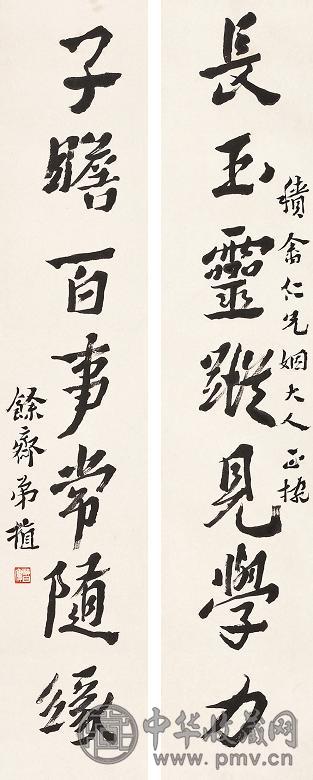 長玉靈蹤見學力
畬仁兄姻大人正
子瞻百事常隨緣
餘齋弟植
中华收藏网
www.pmv.cn